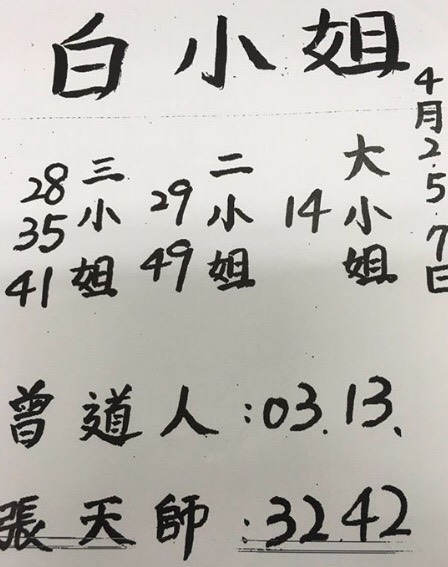 白小姐
4月2.5.7日
大小姐
14
二小姐
29
49
三小姐
28
35
41
曾道人:03.13.
張天師:32.42